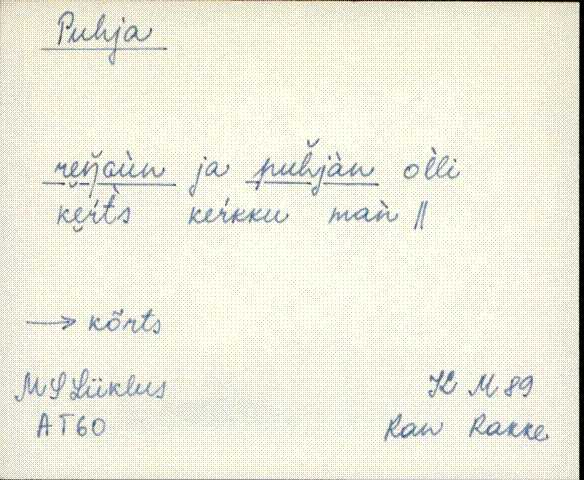 Puhja
reŋ̆ὸùn ja puh̆jàn òlli
kĕŕt̀s keŕkku maǹ ||
→ kõrts
M S Liiklus
AT60
K M 89
Ran Rakke